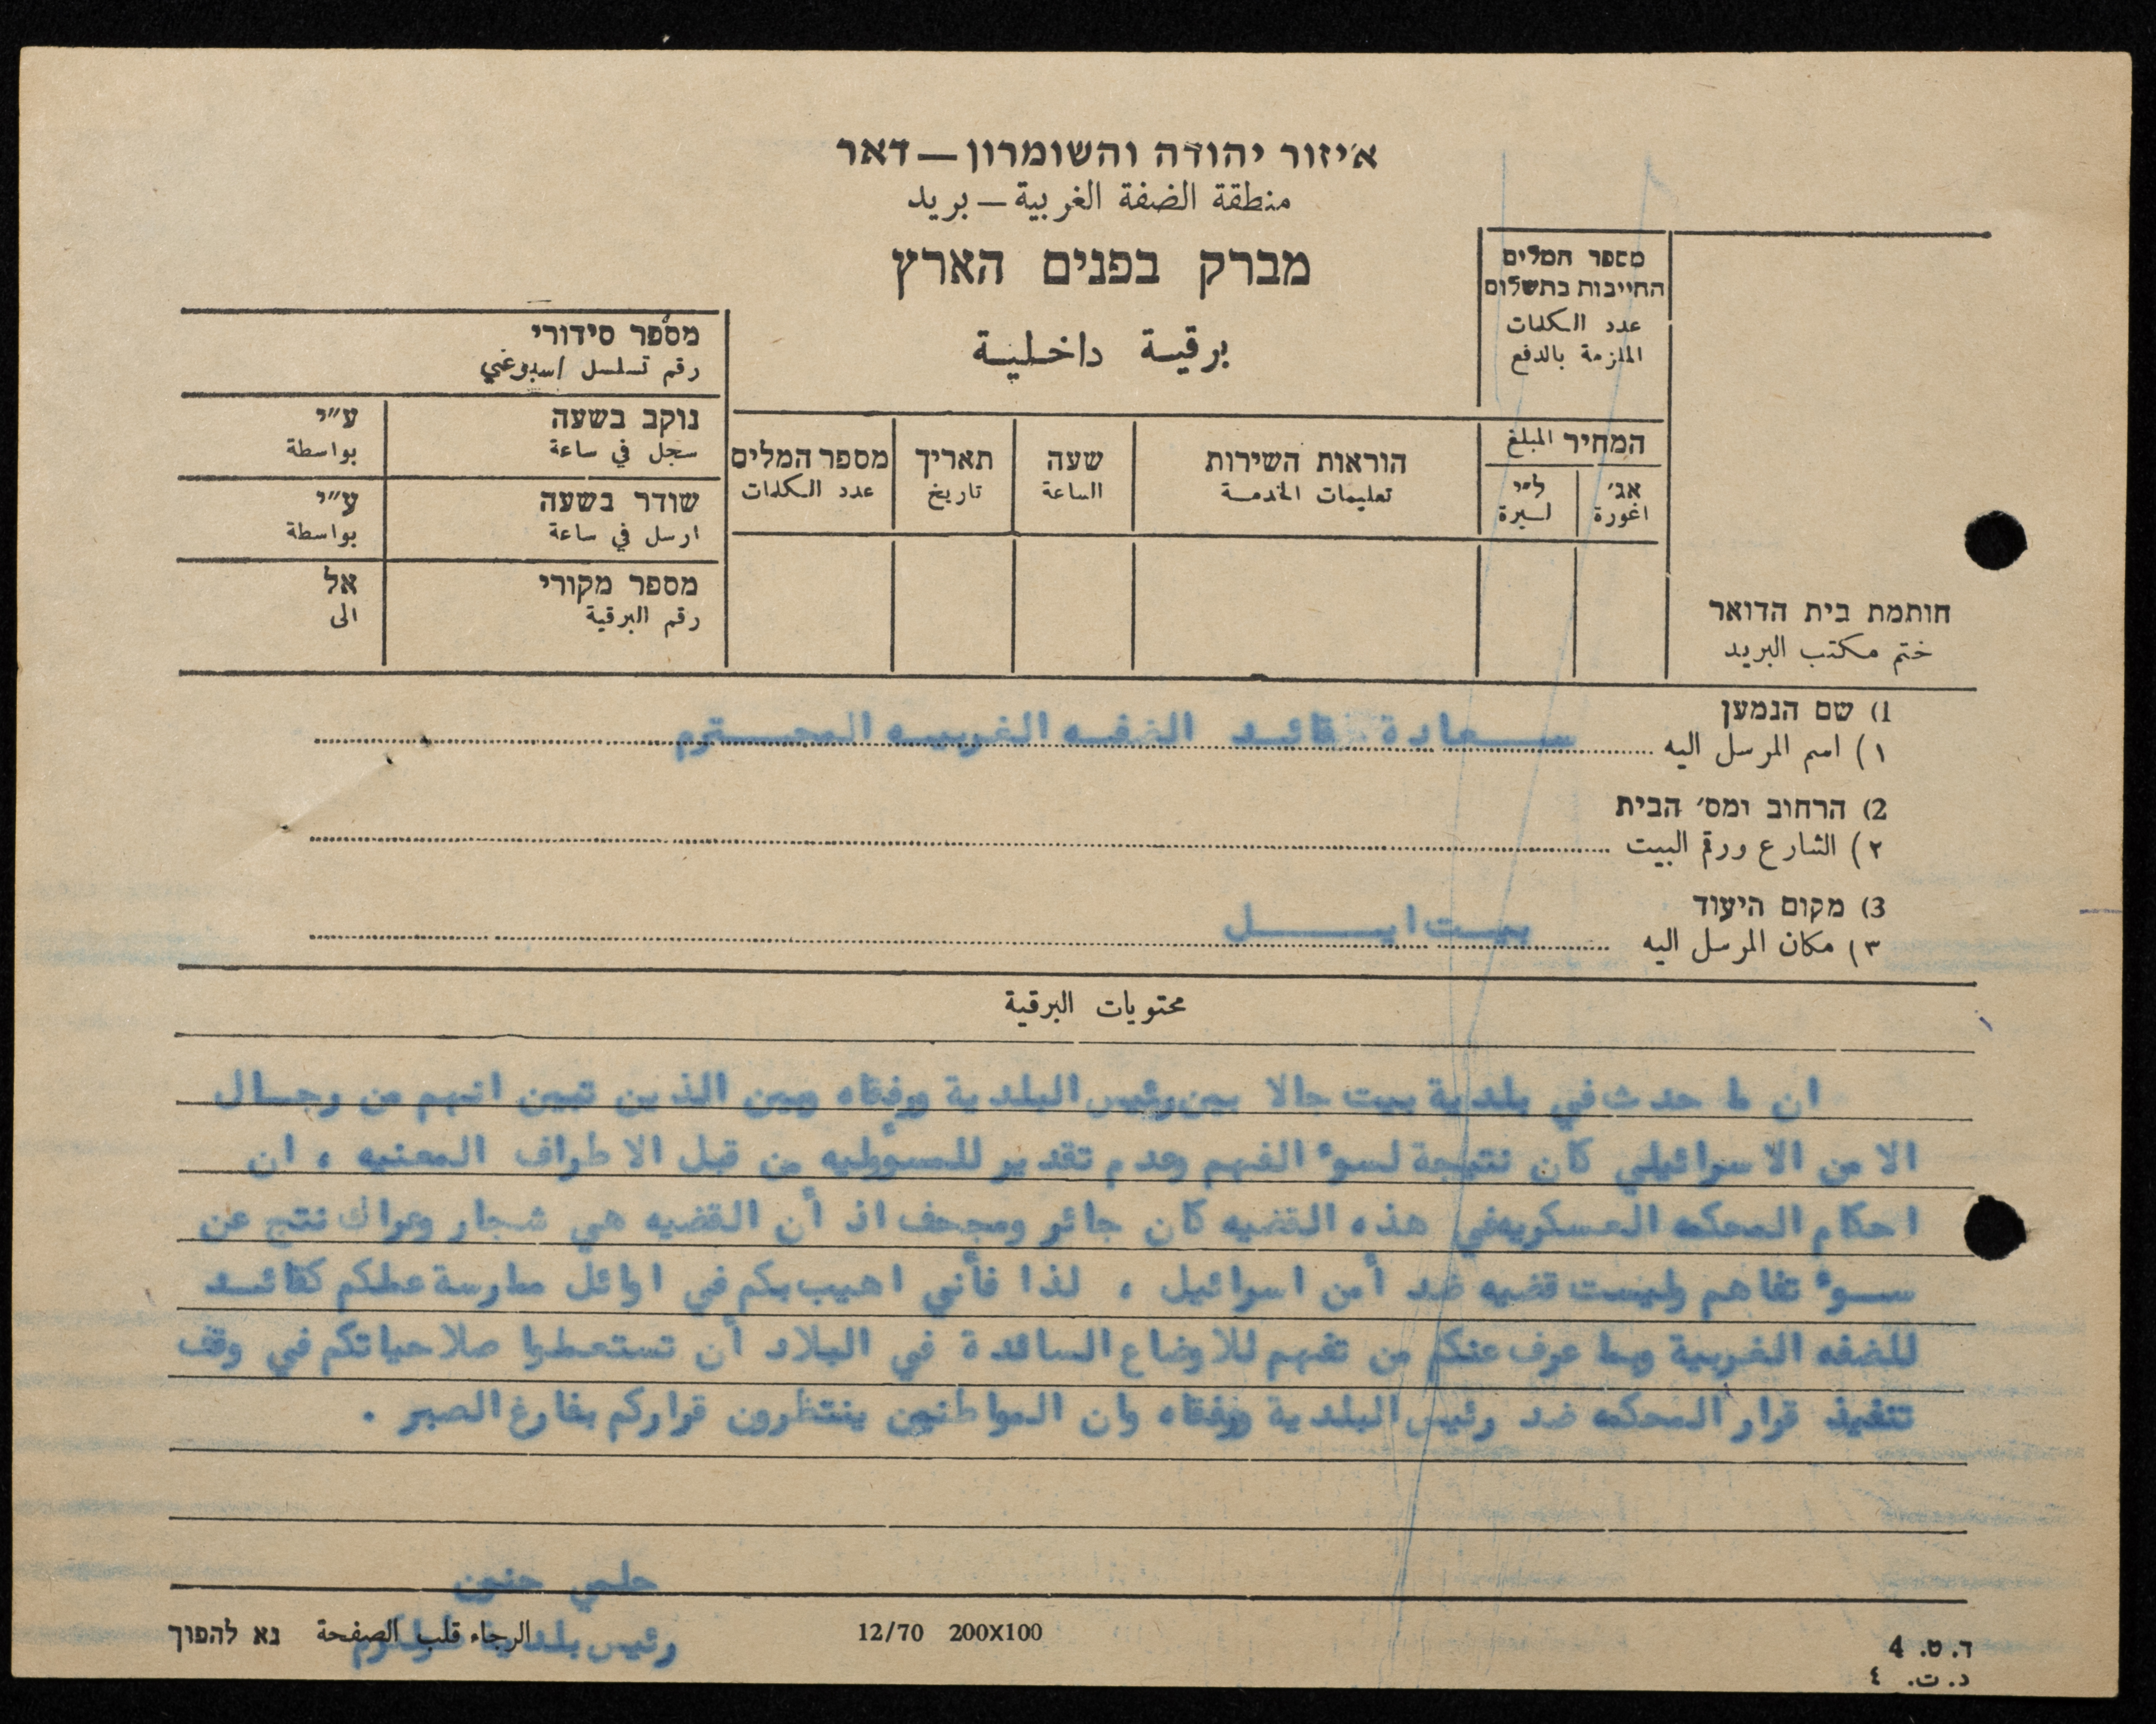 איזור יהודה והשומרון — דאר
منطقة الضفة الغربية — بريد
מברק בפנים הארץ
برقية داخلية
מספר המלים
החייבות בתשלום
عدد الكلمات
الملزمة بالدفع
המחיר المبلغ
אג׳
اغورة
ל״י
ليرة
הוראות השירות
تعليمات الخدمة
שעה
الساعة
תאריך
تاريخ
מספר המלים
عدد الكلمات
מספר סידורי
رقم تسلسل اسبوعي
נוקב בשעה
سجل في ساعة
ע״י
بواسطة
שודר בשעה
ارسل في ساعة
ע״י
بواسطة
מספר מקורי
رقم البرقية
אל
الى
חותמת בית הדואר
ختم مكتب البريد
1) שם הנמען
١) اسم المرسل اليه سعادة قائد الضفه الغربيه المحترم
2) הרחוב ומס׳ הבית
٢) الشارع ورقم البيت
3) מקום היעוד
٣) مكان المرسل اليه بيت ايل
محتويات البرقية
ان ما حدث في بلدية بيت جالا بين رئيس البلدية ورفقاه وبين الذين تبين انهم من رجال
الامن الاسرائيلي كان نتيجة لسوء الفهم وعدم تقدير للمسؤوليه من قبل الاطراف المعنيه ، ان
احكام المحكمه العسكريه في هذه القضيه كان جائر ومجحف اذ أن القضيه هي شجار وعراك نتج عن
سوء تفاهم وليست قضيه ضد أمن اسرائيل ، لذا فأني اهيب بكم في اوائل ممارسة عملكم كقائد
للضفه الغربية وبما عرف عنكم من تفهم للاوضاع السائدة في البلاد أن تستعملوا صلاحياتكم في وقف
تنفيذ قرار المحكمه ضد رئيس البلدية ورفقاه وان المواطنين ينتظرون قراركم بفارغ الصبر .
حلمي حنون
رئيس بلدية طولكرم
נא להפוך الرجاء قلب الصفحة
12/70 200X100
ד. ט. 4
د. ت. ٤